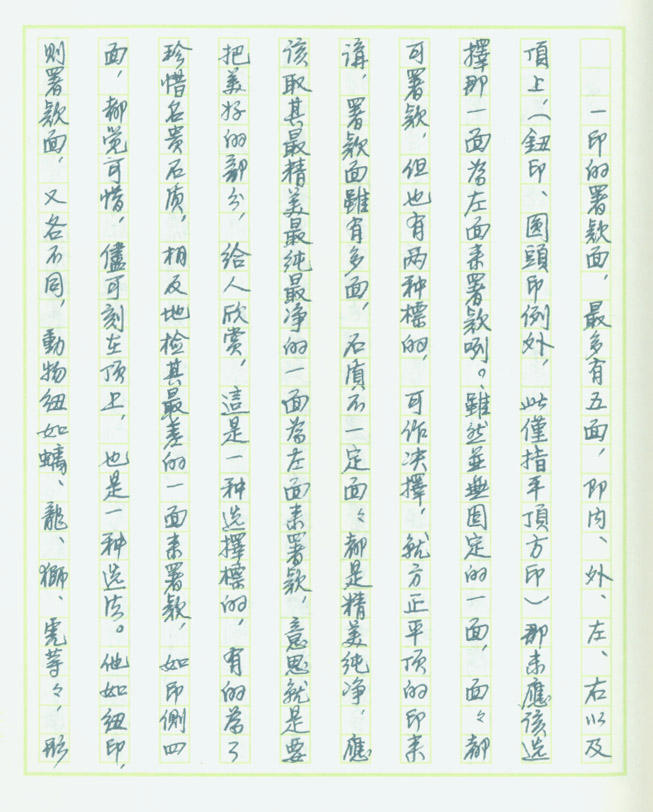 一印的署款面，最多有五面，即内、外、左、右以及
頂上，（鈕印、圓頭印例外，此僅指平頂方印）那末應該选
擇那一面為左面来署款咧。雖然並無固定的一面，面々都
可署款，但也有两种標的，可作决擇，就方正平顶的印来
講，署款面雖有多面，石質不一定面々都是精美纯净，應
该取其最精美最纯最净的一面為左面来署款，意思就是要
把美好的部分，给人欣赏，這是一种选擇標的，有的為了
珍惜名贵石质，相反地检其最差的一面来署款，如印侧四
面，都觉可惜，儘可刻在顶上，也是一种选法。他如纽印，
则署款面，又各不同，動物纽如螭、龍、獅、虎等々，形